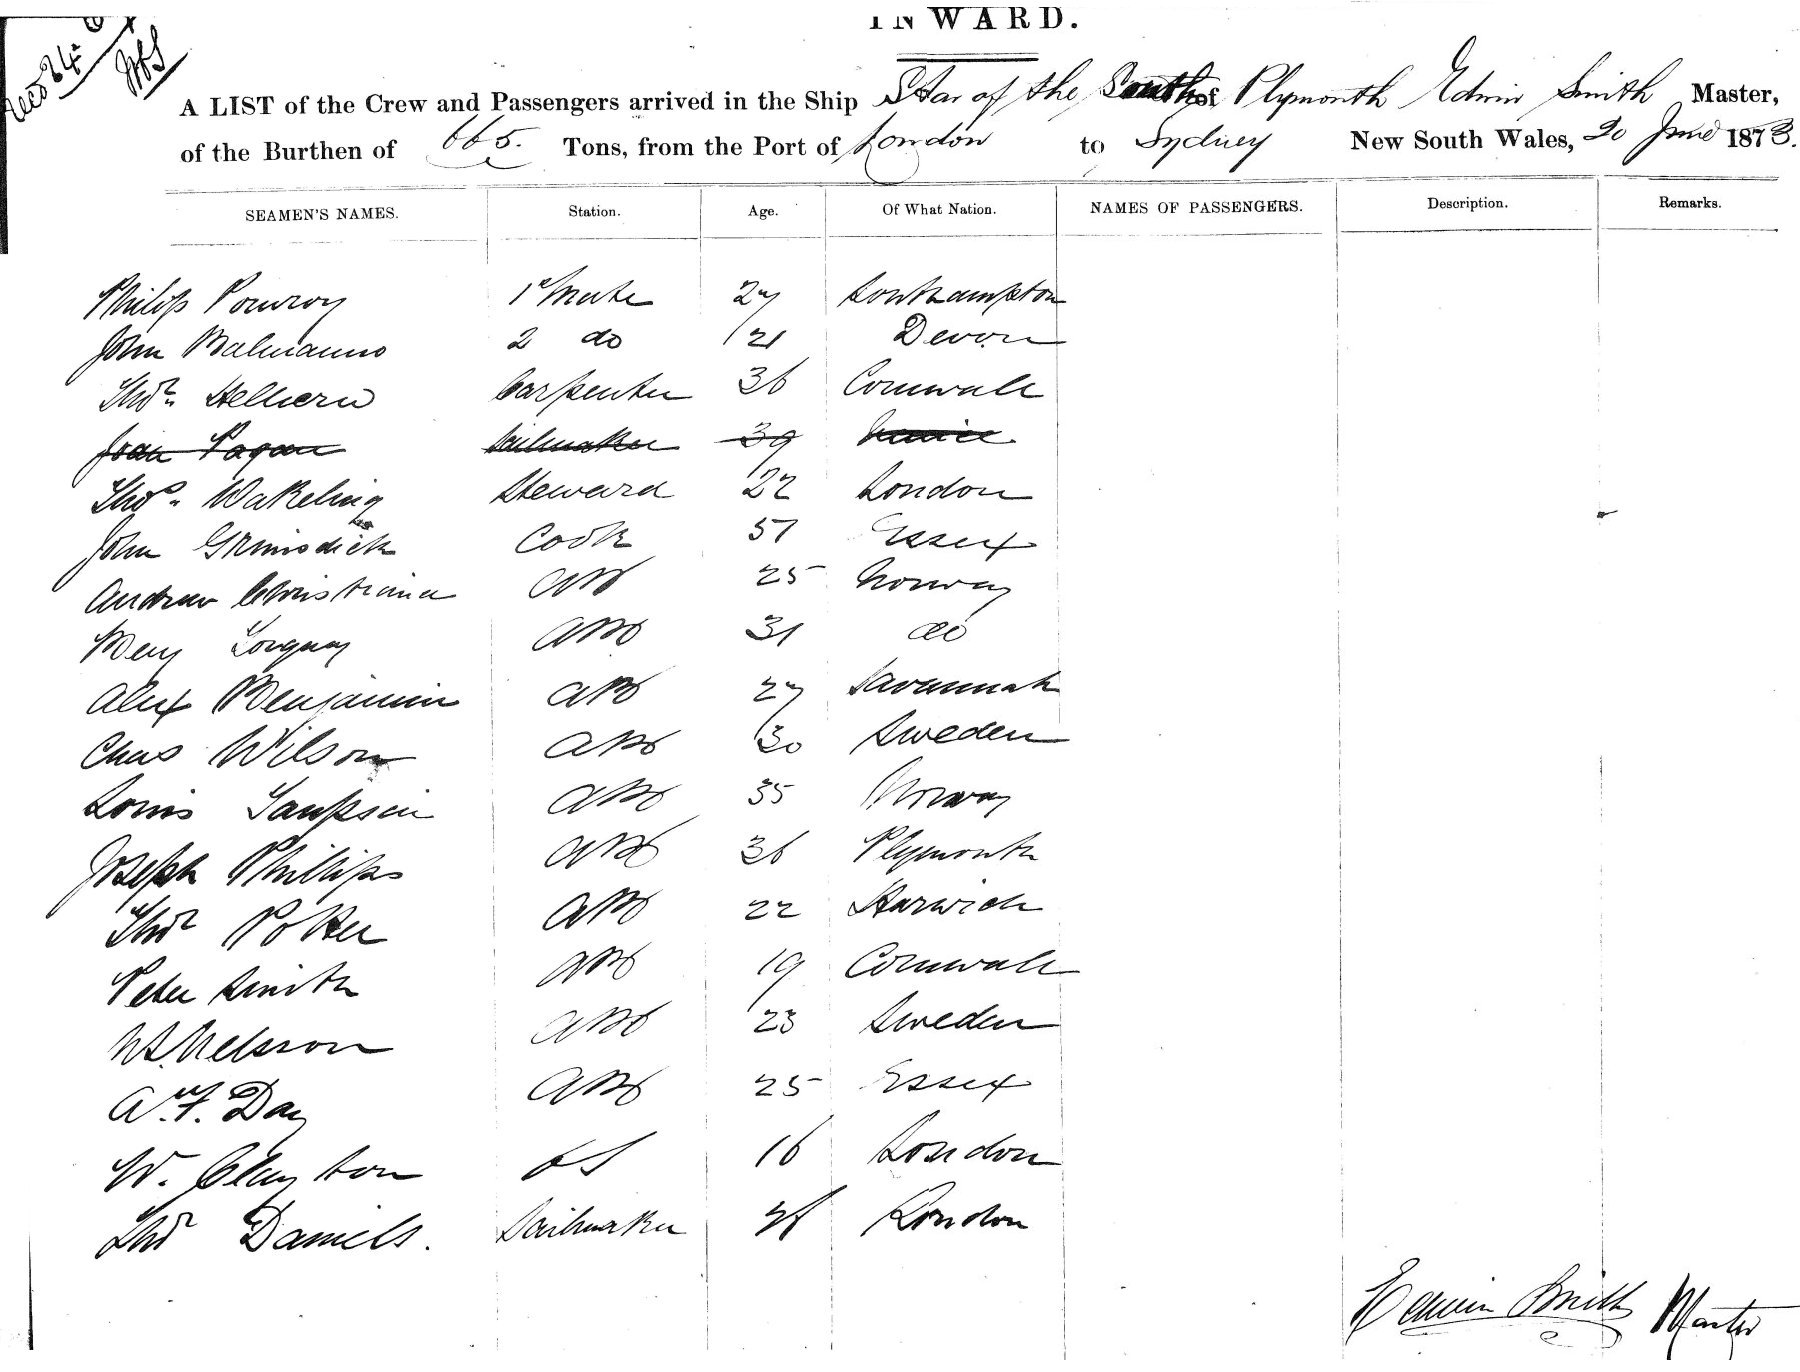 INWARD.
A LIST of the Crew and Passengers arrived in the Ship Star of the South of Plymouth Edwin Smith Master,
of the Burthen of 665. Tons, from the Port of London to Sydney New South Wales, 20 June 1873.
SEAMEN'S NAMES. Station. Age. Of What Nation. NAMES OF PASSENGERS. Description. Remarks.
Philip Pomroy 1st Mate 27 Southampton
John Balmanno 2 do 21 Devon
Thos. Hellern Carpenter 36 Cornwall
Joan Pagan Sailmaker 39
Thos. Wakeling Steward 22 London
John Grimsdick Cook 57 Essex
Andrew Christiana AB 25 Norway
Benj Torquay AB 31 do
Alex Benjamin AB 27 Savannah
Chas Wilson AB 30 Sweden
Louis AB 35 Norway
Joseph Phillips AB 36 Plymouth
Thos Potter AB 22 Harwich
Peter Smith AB 19 Cornwall
Nelsson AB 23 Sweden
A. F. Day AB 25 Essex
W. Clayton OS 16 London
Thos Daniels. Sailmaker London
Edwin Smith Master